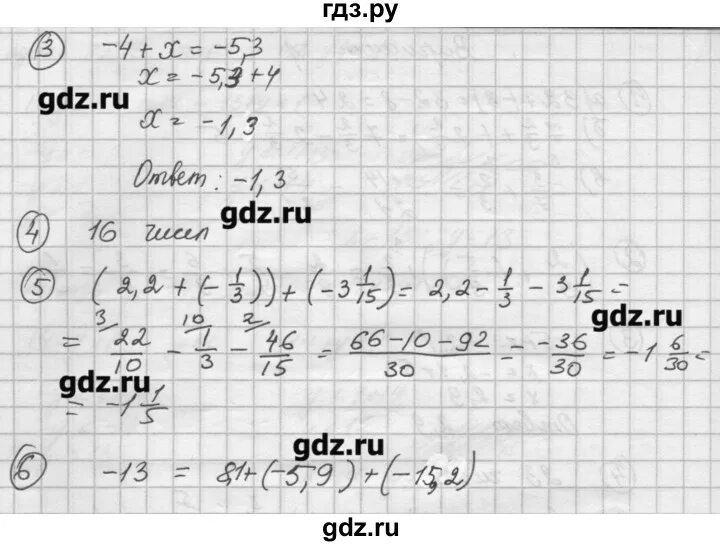 гдз.ру
③ -4 + x = -5,3
x = -5,3 + 4
gdz.ru
x = -1,3
Ответ: -1,3
gdz.ru
④ 16 чисел
⑤ (2,2 + (-1/3)) + (-3 1/15) = 2,2 - 1/3 - 3 1/15 =
gdz.ru
= 3/ 22/10 - 10/ 1/3 - 2/ 46/15 = (66-10-92)/30 = -36/30 = -1 6/30 =
gdz.ru
= -1 1/5
gdz.ru
⑥ -13 = 8,1+(-5,9)+(-15,2)
gdz.ru